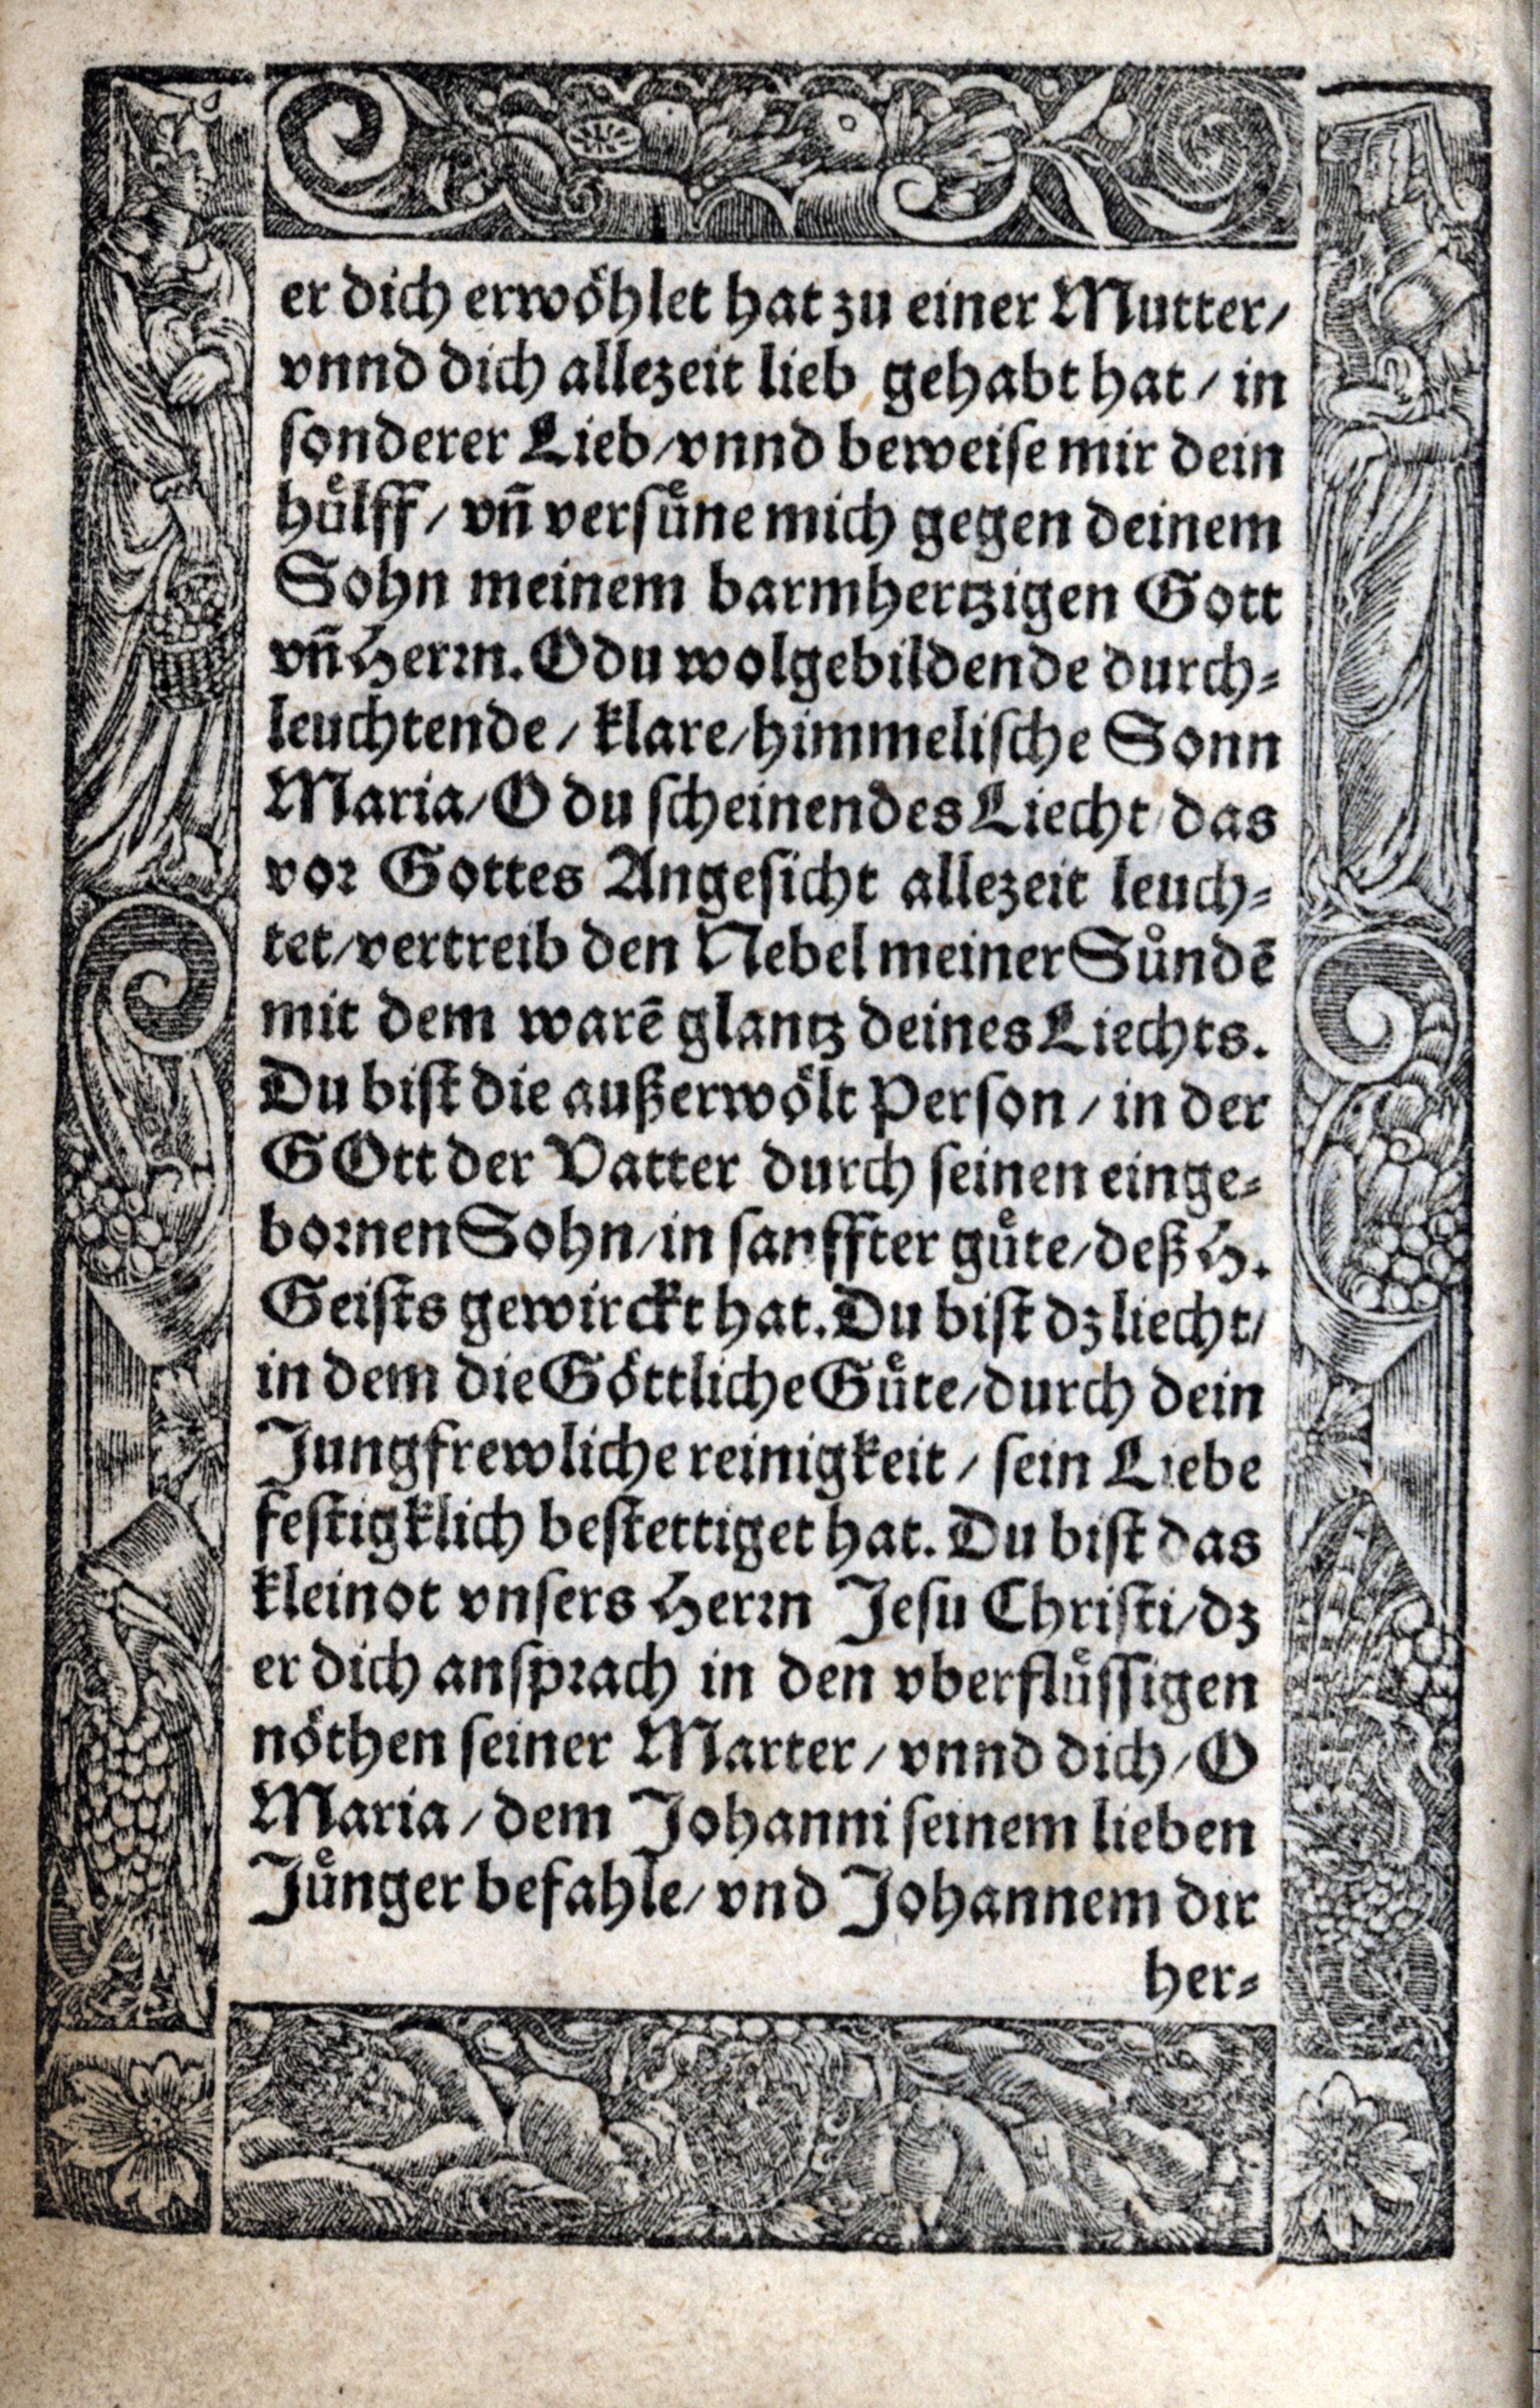 er dich erwöhlet hat zu einer Mutter/
vnnd dich allezeit lieb gehabt hat / in
sonderer Lieb/vnnd beweise mir dein
hůlff / vñ versůne mich gegen deinem
Sohn meinem barmhertzigen Gott
vñ Herrn. O du wolgebildende durch⸗
leuchtende / klare/himmelische Sonn
Maria/O du scheinendes Liecht/das
vor Gottes Angesicht allezeit leuch⸗
tet/vertreib den Nebel meiner Sůndē
mit dem warē glantz deines Liechts.
Du bist die außerwölt Person / in der
GOtt der Vatter durch seinen einge⸗
bornen Sohn/in sanffter gůte/deß H.
Geists gewirckt hat. Du bist dz liecht/
in dem die Göttliche Gůte/durch dein
Jungfrewliche reinigkeit / sein Liebe
festigklich bestettiget hat. Du bist das
kleinot vnsers Herrn Jesu Christi/dz
er dich ansprach in den vberflůssigen
nöthen seiner Marter / vnnd dich/O
Maria / dem Johanni seinem lieben
Jůnger befahle/ vnd Johannem dir
her⸗